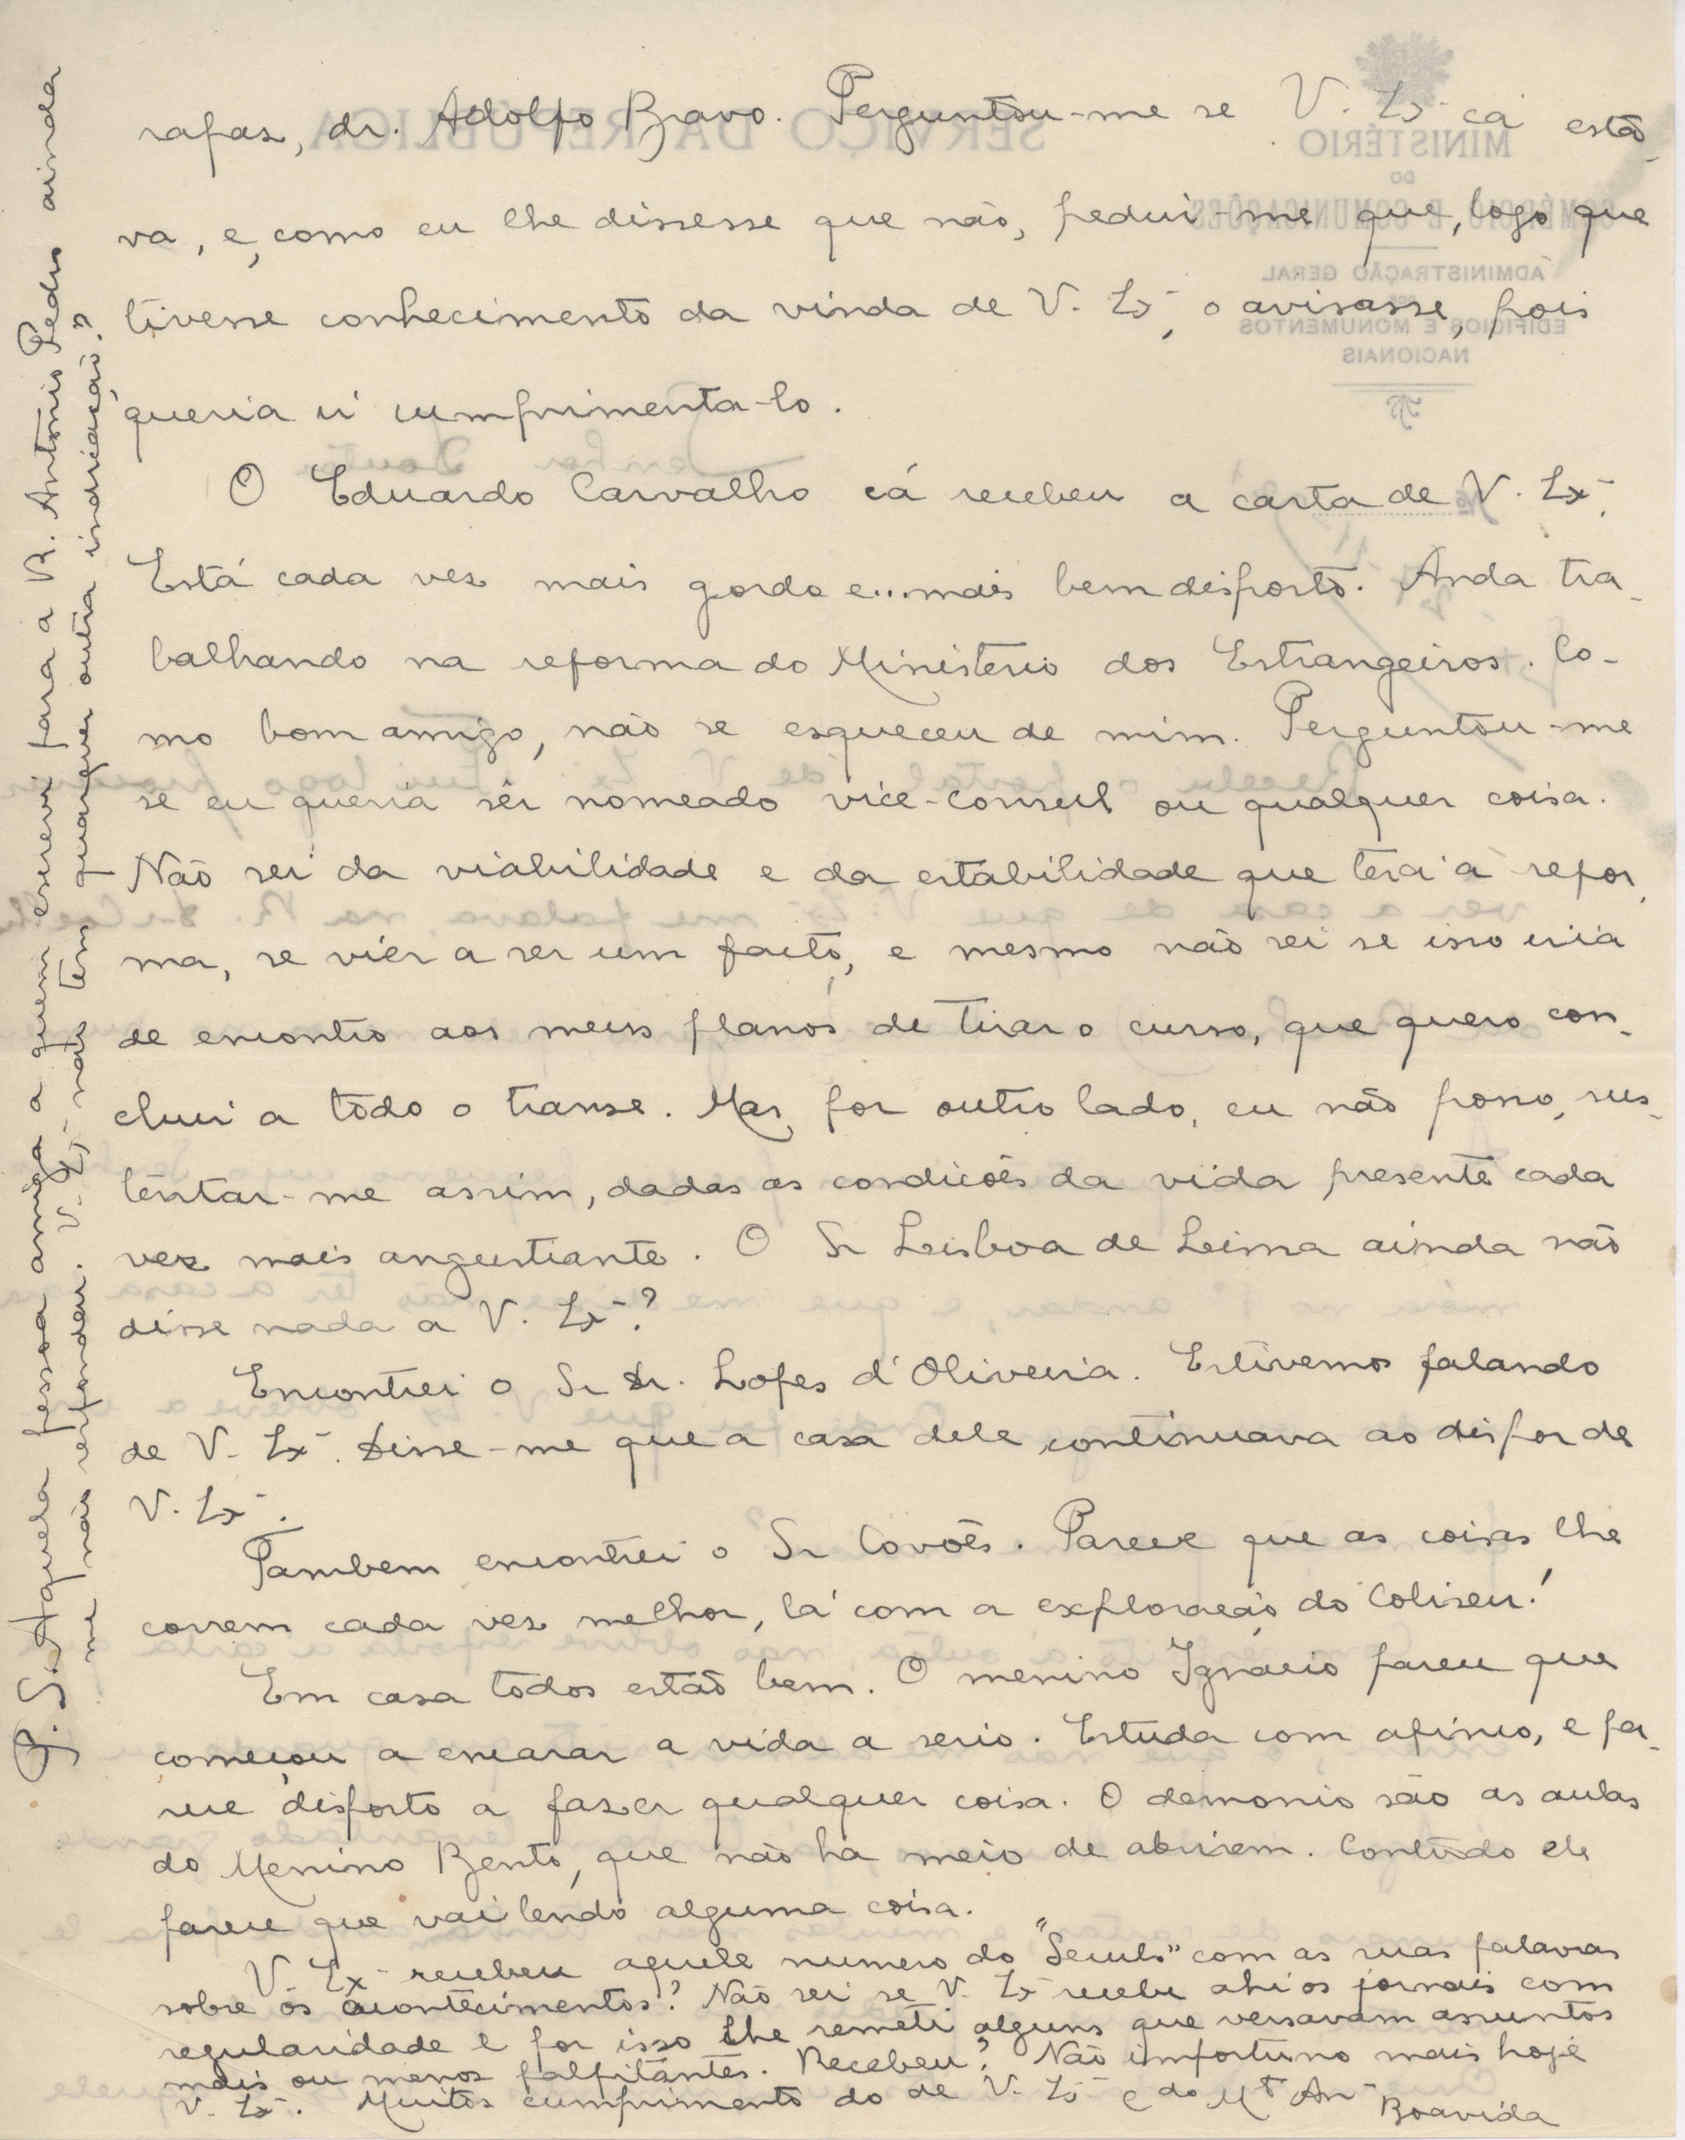 rapaz, dr. Adolfo Bravo. Perguntou-me se V. Ex cá está-
va, e, como eu lhe dissesse que não, pediu-me que, logo que
tivesse conhecimento da vinda de V. Ex, o avisasse, pois
queria ir cumprimenta-lo.
O Eduardo Carvalho cá recebeu a carta de V. Ex.
Está cada vez mais gordo e...mais bem disposto. Anda tra-
balhando na reforma do Ministerio dos Estrangeiros. Co-
mo bom amigo, não se esqueceu de mim. Perguntou-me
se eu queria sêr nomeado vice-consul ou qualquer coisa.
Não sei da viabilidade e da estabilidade que terá a refor-
ma, se viér a ser um facto, e mesmo não sei se isso iria
de encontro aos meus planos de tirar o curso, que quero con-
cluir a todo o transe. Mas, por outro lado, eu não posso, sus-
tentar-me assim, dadas as condicões da vida presente cada
vez mais angustiante. O Sr Lisboa de Lima ainda não
disse nada a V. Ex?
Encontrei o Sr Dr. Lopes d'Oliveira. Estivemos falando
de V. Ex. Disse-me que a casa dele continuava ao dispor de
V. Ex.
Tambem encontrei o Sr Covões. Parece que as coisas lhe
correm cada vez melhor, lá com a exploração do Coliseu!
Em casa todos estão bem. O menino Ignacio parece que
começou a encarar a vida a serio. Estuda com afinco, e pa-
rece disposto a fazer qualquer coisa. O demonio são as aulas
do Menino Bento, que não ha meio de abrirem. Contudo ele
parece que vai lendo alguma coisa.
V. Ex recebeu aquele numero do "Seculo" com as suas palavras
sobre os acontecimentos? Não sei se V. Ex recebe ahi os jornais com
regularidade e por isso lhe remeti alguns que versavam assuntos
mais ou menos palpitantes. Recebeu? Não importuno mais hoje
V. Ex. Muitos cumprimentos do de V. Ex e do Mt An
Boavida
P. S. Aquela pessoa amiga a quem escrevi para a R. Antonio Pedro ainda
me não respondeu. V. Ex não tem qualquer outra indicação?
SERVIÇO DA REPÚBLICA
MINISTÉRIO
DO
COMÉRCIO E COMUNICAÇÕES
ADMINISTRAÇÃO GERAL
EDIFICIOS E MONUMENTOS
NACIONAIS